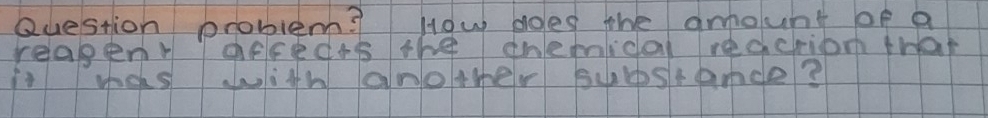 Question problem? How does the amount of a
reagent affects the chemical reaction that
it has with another substance?